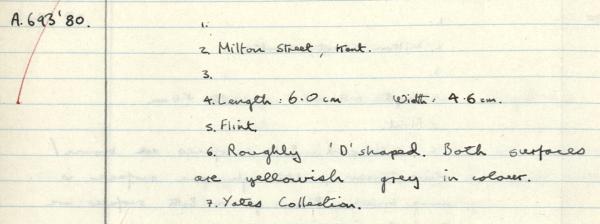 A.693'80.
1.
2. Milton Street, Kent.
3.
4. Length: 6.0 cm Width: 4.6 cm.
5. Flint.
6. Roughly 'D' shaped. Both surfaces
are yellowish grey in colour.
7. Yates Collection.